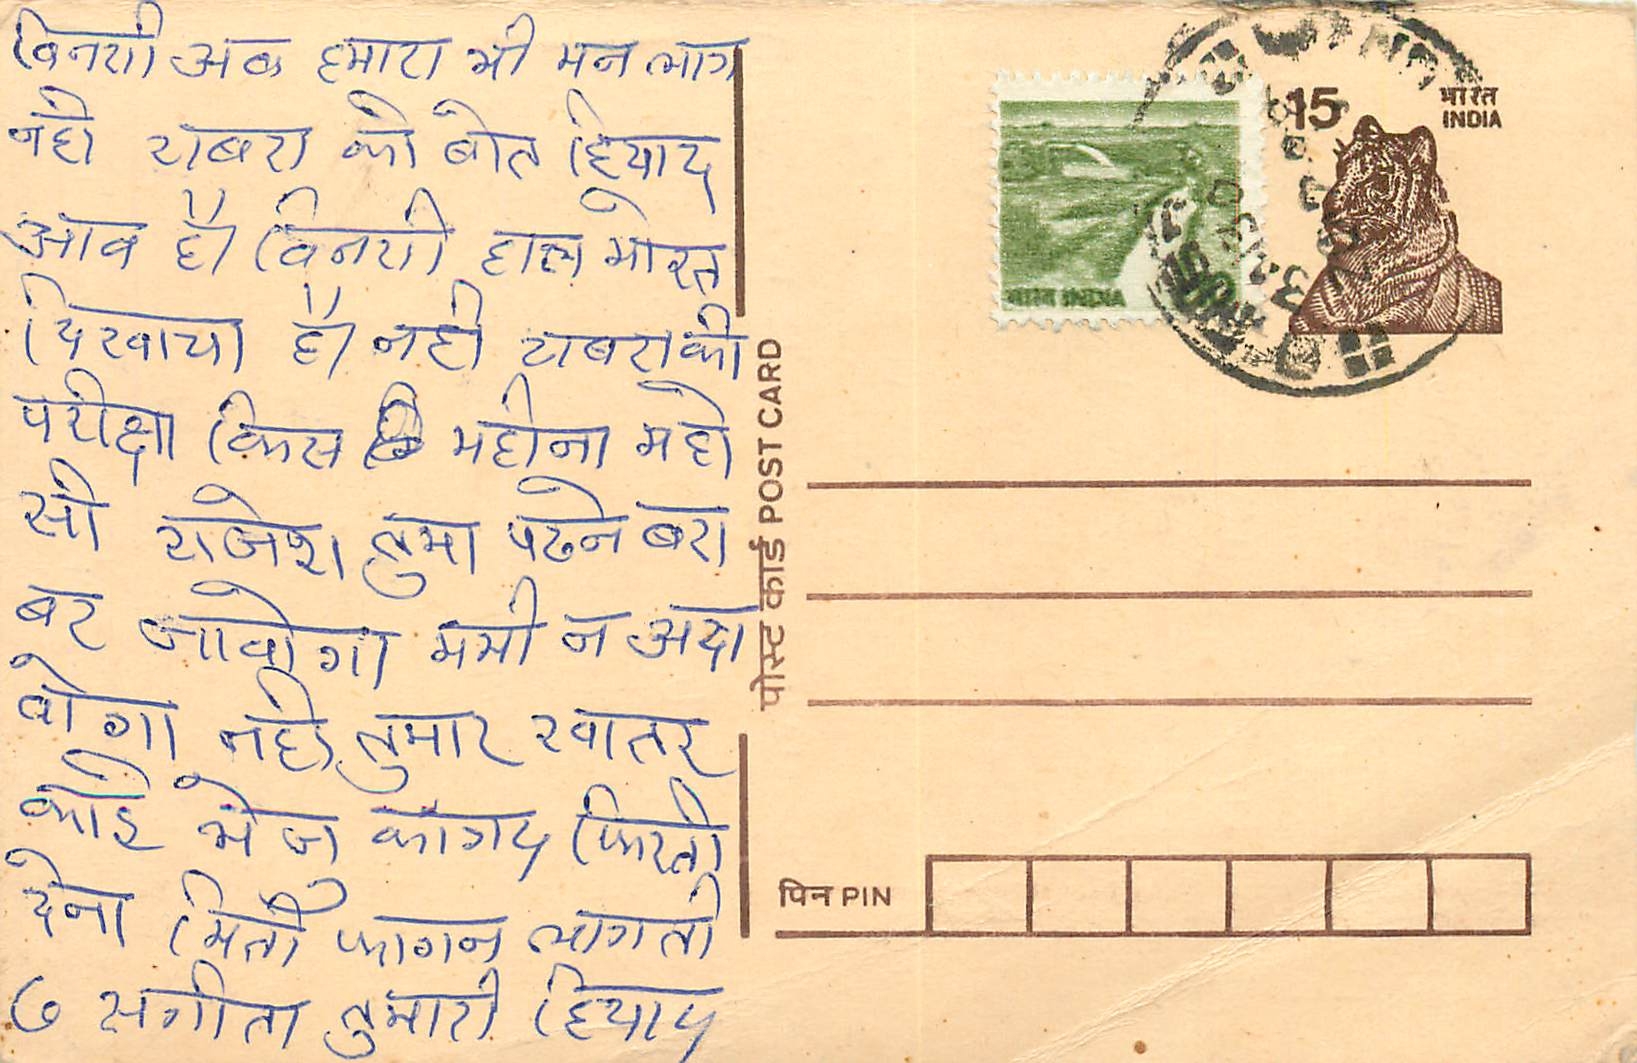 विनती अब हमारा भी मन लाग
नहीं राबरा को बोत हियाद
आव है। विनती हाल भोरत
दिखाया है। नही राबरा की
परीक्षा किस महीना महो
सी राजेश तुमा पढेन बरा
बर जावोगा ममी न अदा
वोगा नहीं तुमार खातर
कोई भेजु कागद फिरती
देना मिती फागन लागती
७ संगीता तुमारी हियाद
15
भारत
INDIA
भारत INDIA
पोस्ट कार्ड POST CARD
पिन PIN